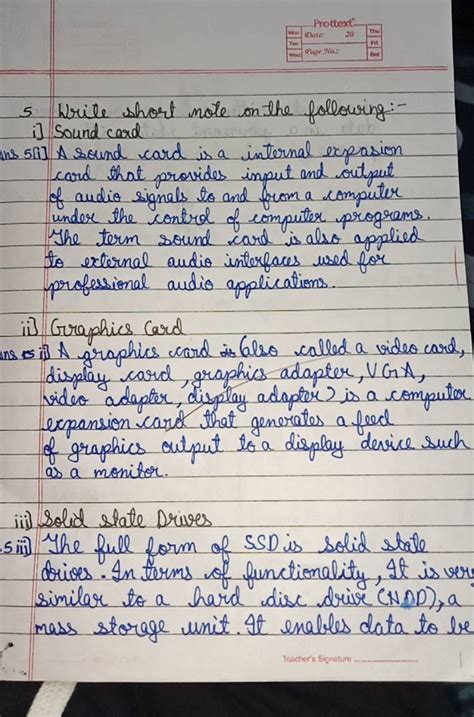 Prottext
Mon Date: 20 Thu
Tue Fri
Wed Page No.: Sat
5 Write short note on the following:-
i] Sound card
Ans 5[i] A sound card is a internal expasion
card that provides input and output
of audio signals to and from a computer
under the control of computer programs.
The term sound card is also applied
to external audio interfaces used for
professional audio applications.
ii] Graphics Card
ii] A graphics card is (also called a video card,
display card, graphics adapter, VGA,
video adapter, display adapter) is a computer
expansion card that generates a feed
of graphics output to a display device such
as a monitor.
iii] Solid state Drives
5 iii] The full form of SSD is solid state
drives. In terms of functionality, It is very
similar to a hard disc drive (HDD), a
mass storage unit. It enables data to be
Teacher's Signature